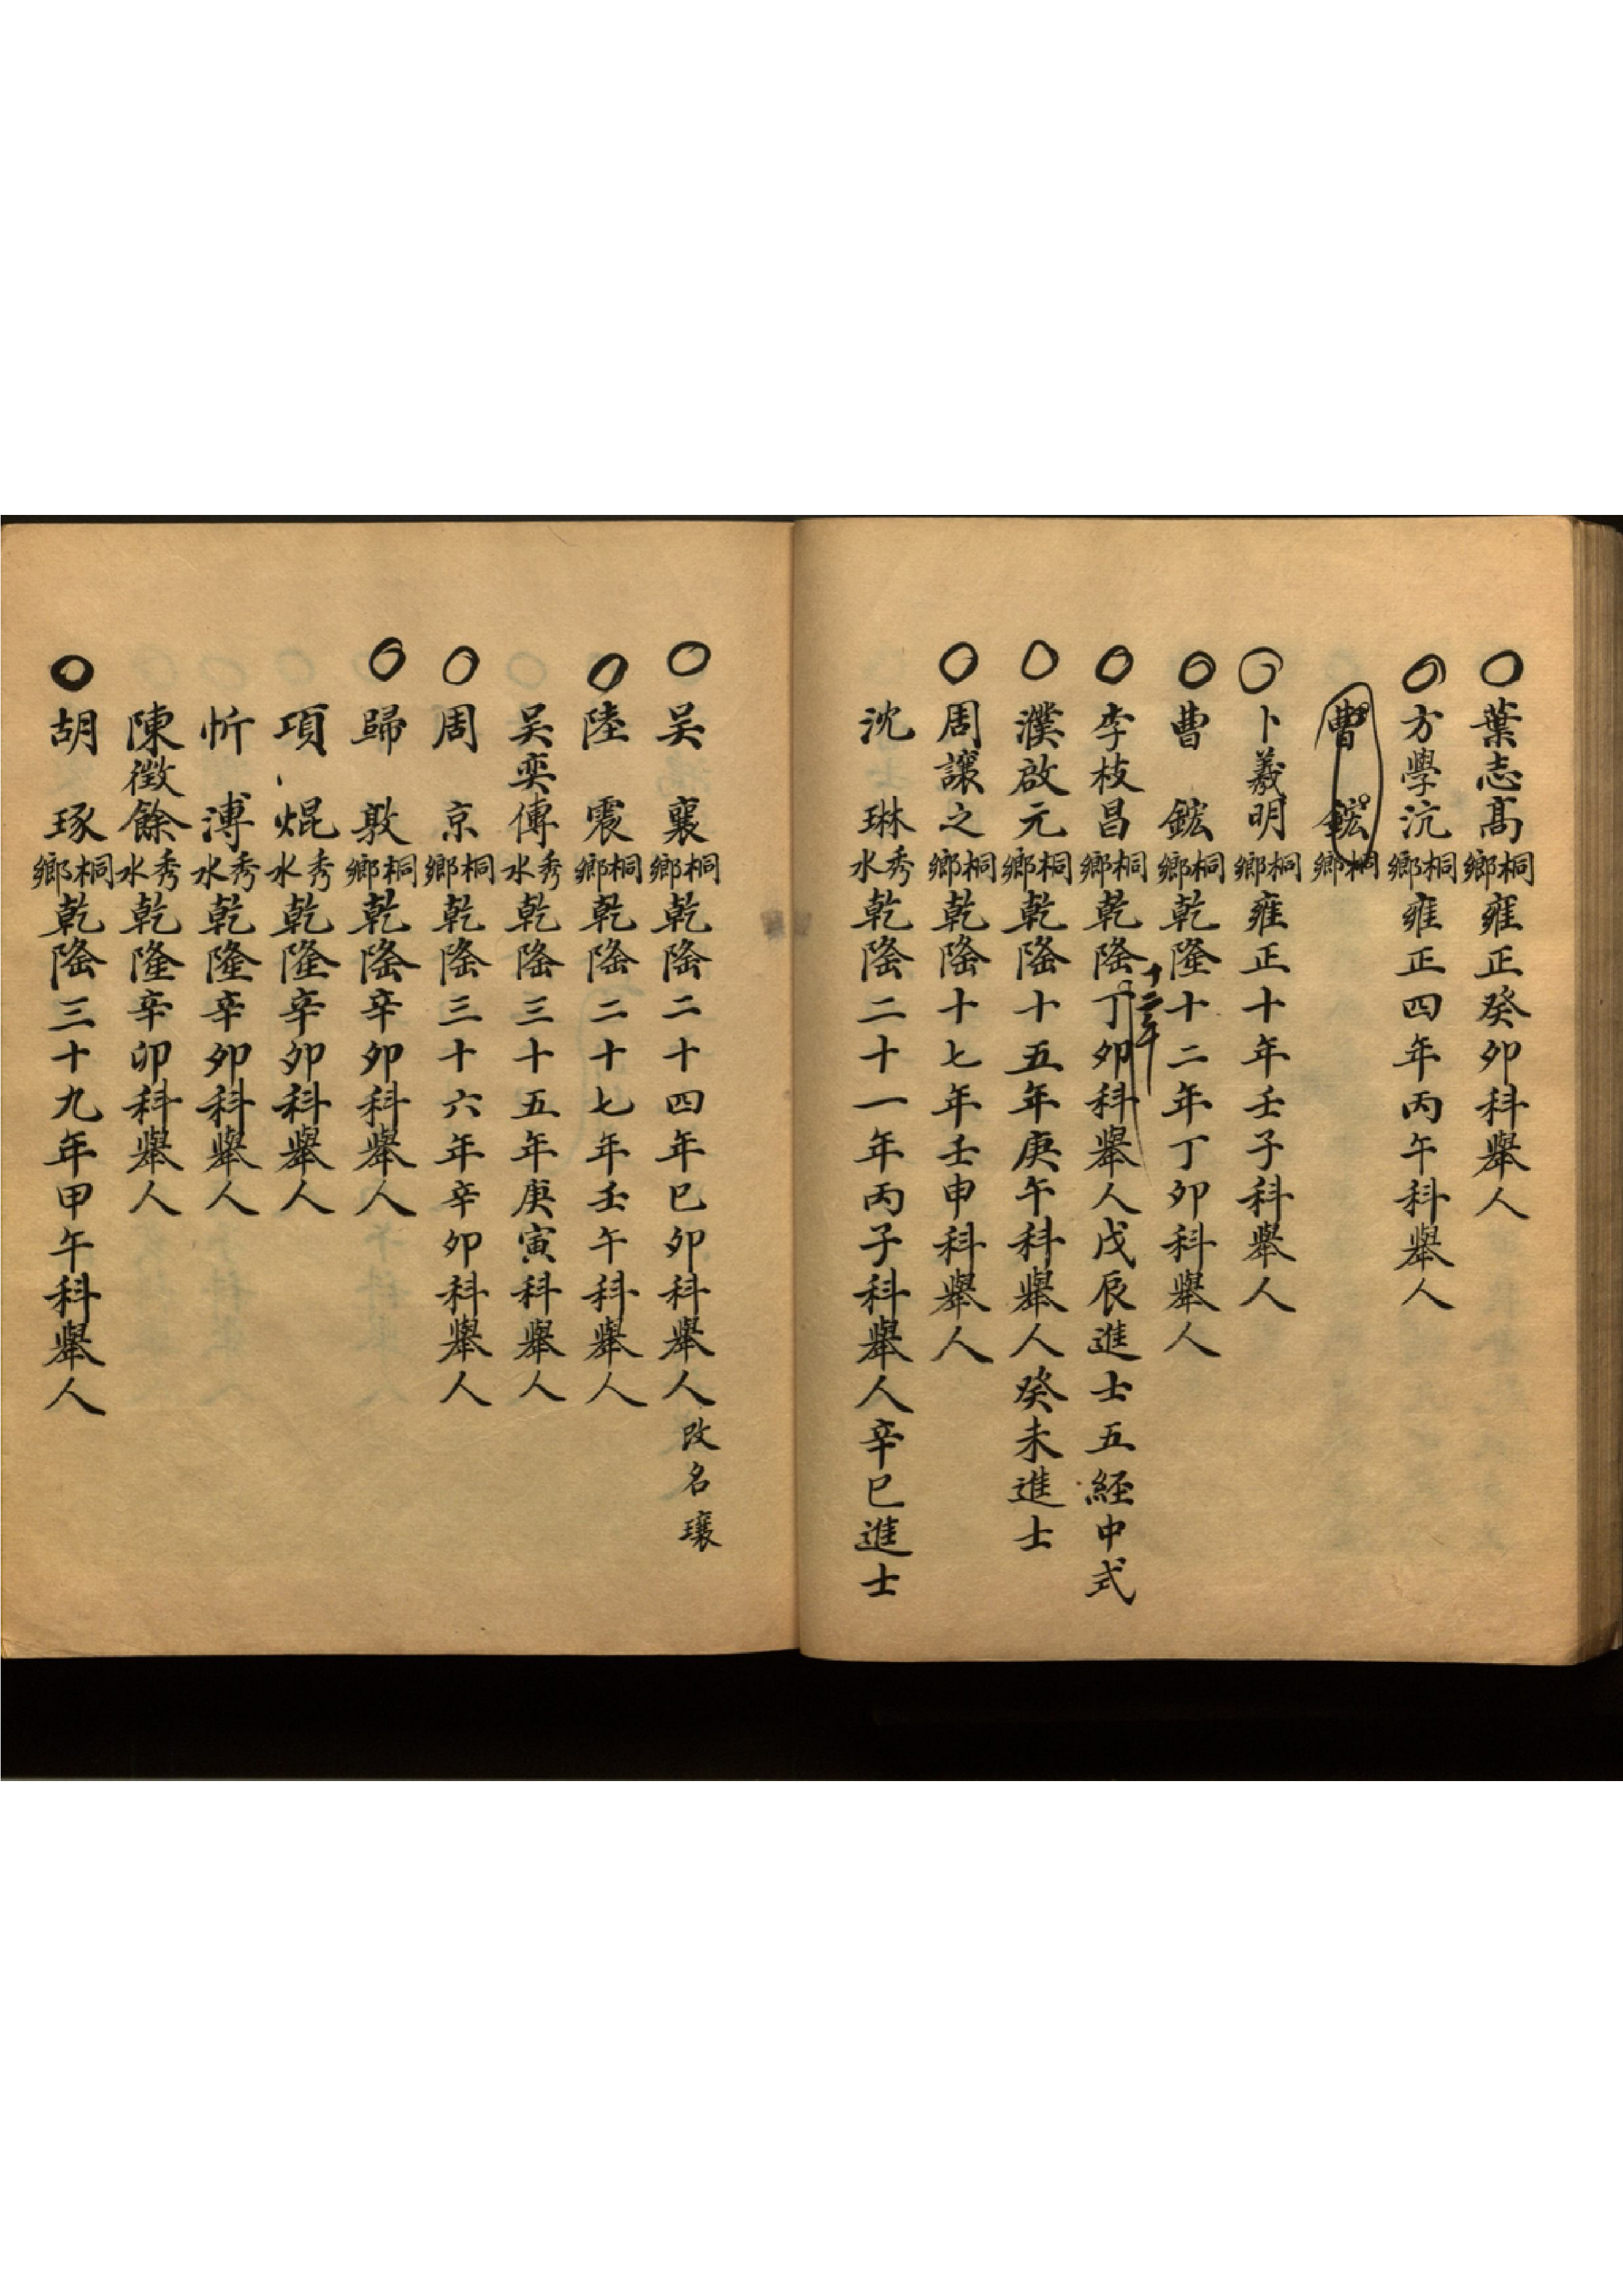 葉志高桐鄉雍正癸卯科舉人
方學沆桐鄉雍正四年丙午科舉人
曹鋐桐鄉
卜羲明桐鄉雍正十年壬子科舉人
曹鋐桐鄉乾隆十二年丁卯科舉人
李枝昌桐鄉乾隆十二年丁卯科舉人戊辰進士五経中式
濮啟元桐鄉乾隆十五年庚午科舉人癸未進士
周讓之桐鄉乾隆十七年壬申科舉人
沈琳秀水乾隆二十一年丙子科舉人辛巳進士
吴襄桐鄉乾隆二十四年己卯科舉人改名瓖
陸震桐鄉乾隆二十七年壬午科舉人
吴奕傳秀水乾隆三十五年庚寅科舉人
周京桐鄉乾隆三十六年辛卯科舉人
歸敦桐鄉乾隆辛卯科舉人
項焜秀水乾隆辛卯科舉人
忻溥秀水乾隆辛卯科舉人
陳徵餘秀水乾隆辛卯科舉人
胡琢桐鄉乾隆三十九年甲午科舉人